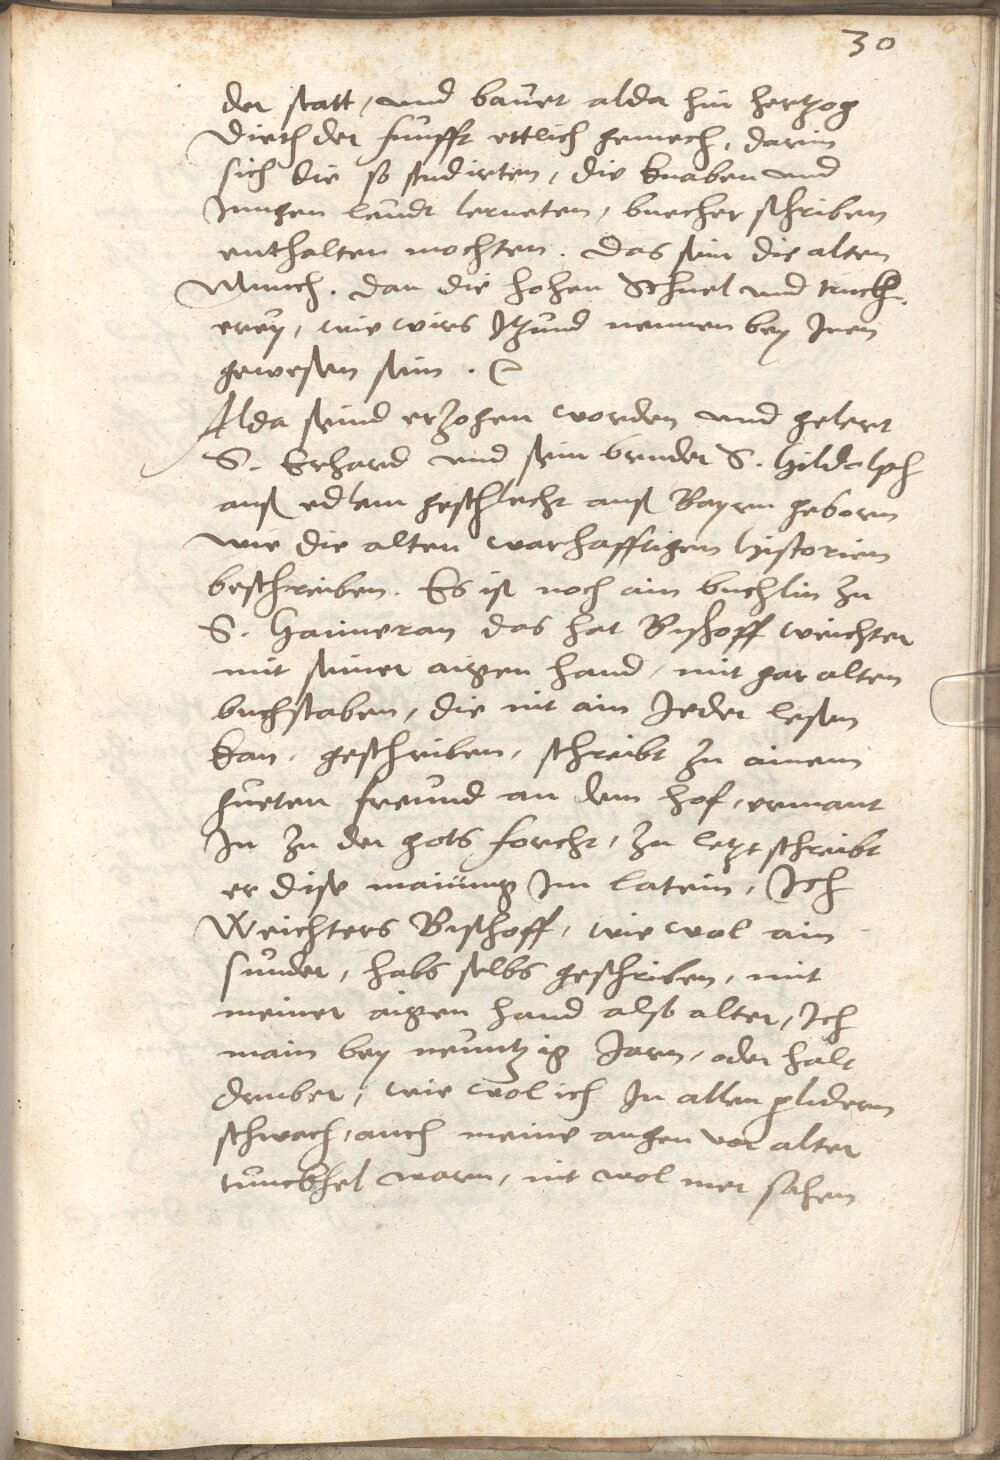 30
der statt, und bauet alda hin hertzog
Dieth der funfft ettlich gemech, darinn
sich die so studirten, die knaben und
Jungen leudt lerneten, buecher schriben
enthalten mochten. Das sein die alten
Munch. dan die hohen Schuel und truckh-
erey, wie wirs Jtzund nennen bey Jnen
gewesen sein.
Alda seind erzogen worden und gelert
S. Erhard und sein bruder S. Hildolph
auß edlem geschlecht auß Bayrn geborn
wie die alten warhafftigen Historien
beschreiben. Es ist noch ain buchlin zu
S. Haimeran das hat Bischoff Weichter
mit seiner aigen hand, mit gar alten
buchstaben, die nit ain Jeder lesen
kan, geschriben, schreibt zu ainem
gueten freund an dem hof, ermant
Jn zu der gots forcht, zu letzt schreibt
er dise mainung Jm latein, Jch
Weichters Bischoff, wie wol ain
sunder, habs selbs geschriben, mit
meiner aigen hand also alter, Jch
main bey neuntzig Jarn, oder halt
druber, wie wol ich Jn allen glidern
schwach, auch meine augen vor alter
tunckhel warn, nit wol mer sahen